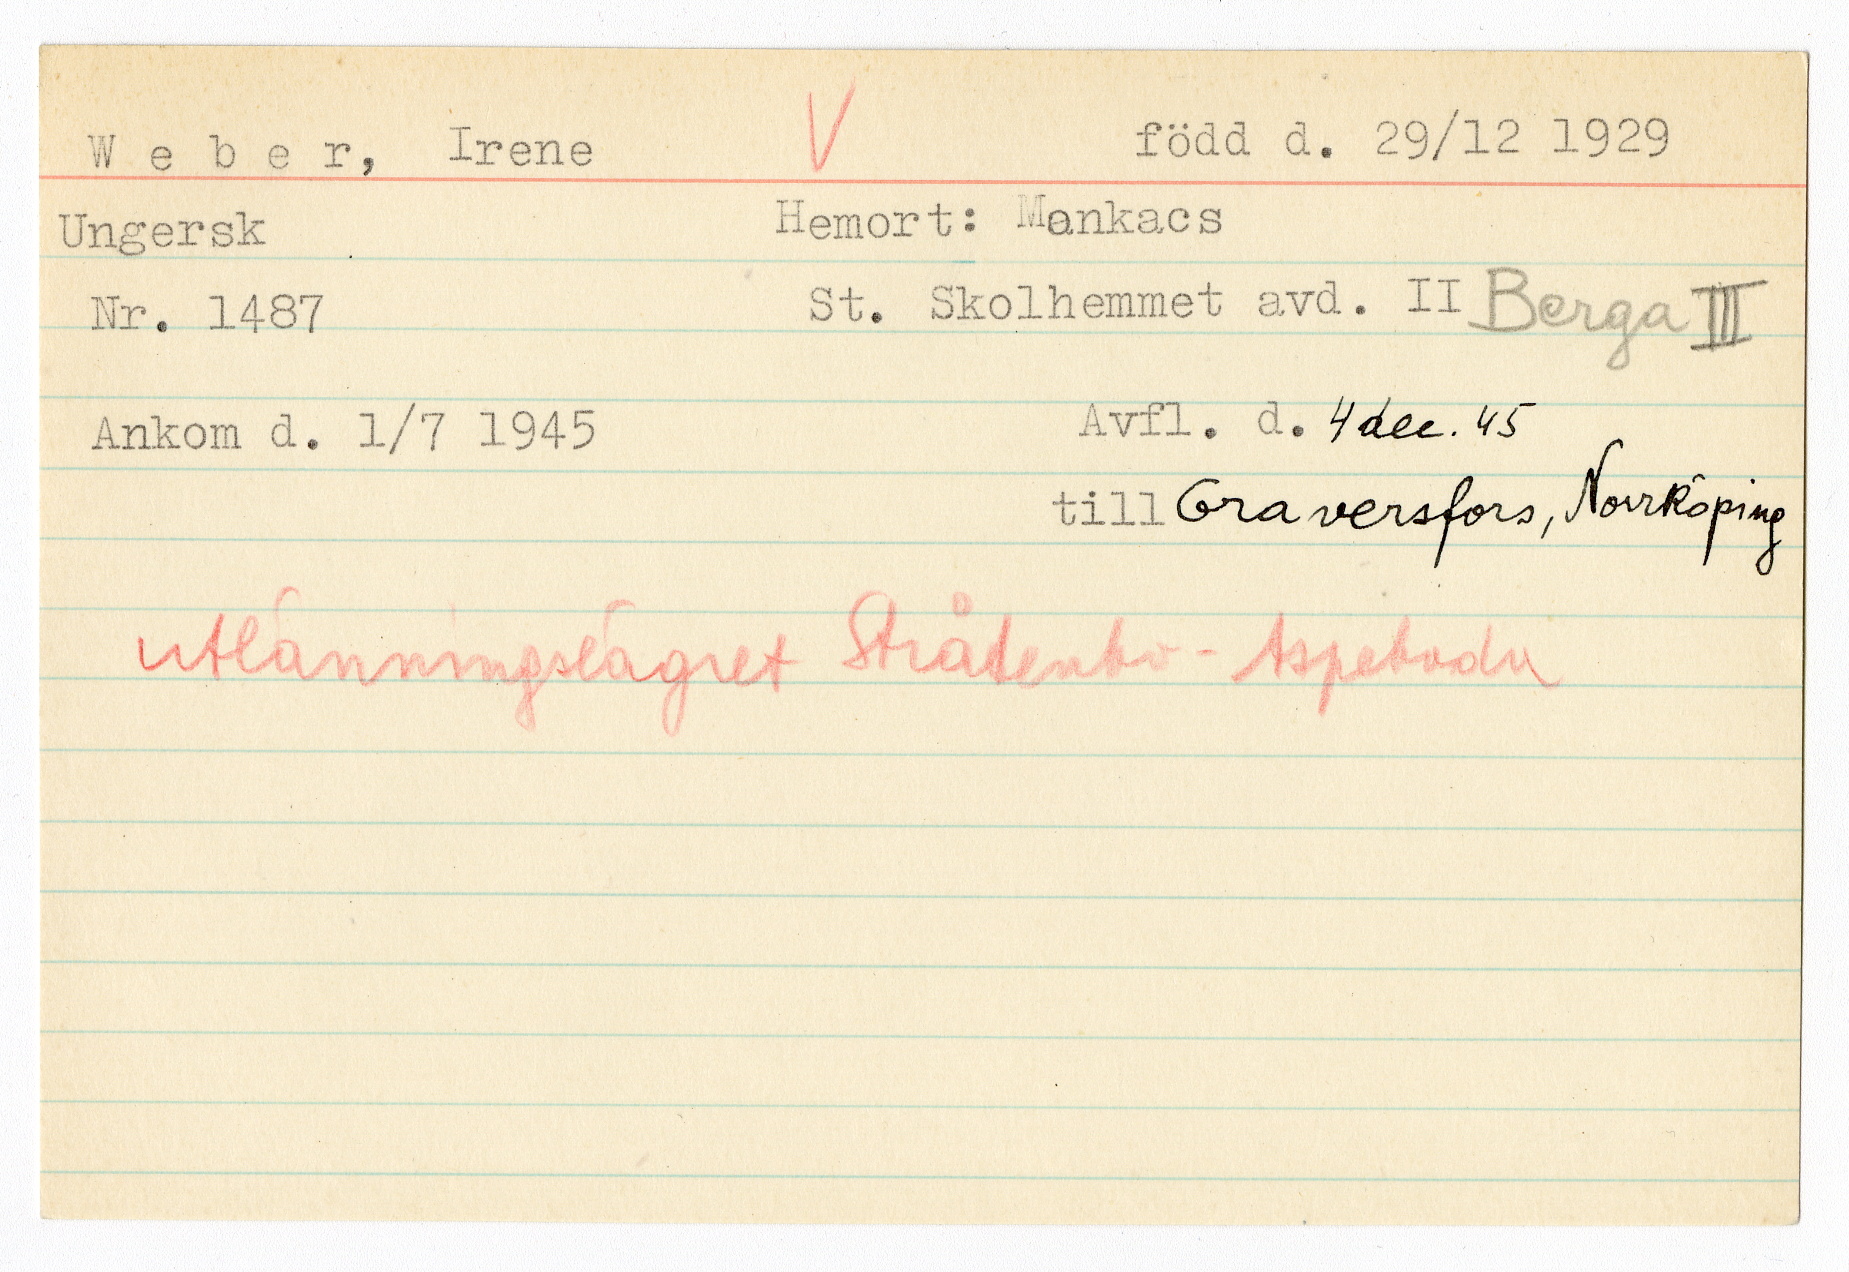 Weber, Irene V född d. 29/12 1929
Ungersk Hemort: Mankacs
Nr. 1487 St. Skolhemmet avd. II Berga III
Ankom d. 1/7 1945 Avfl. d. 4 dec. 45
till Graversfors, Norrköping
utlänningslägret Stråtenbo - Aspeboda